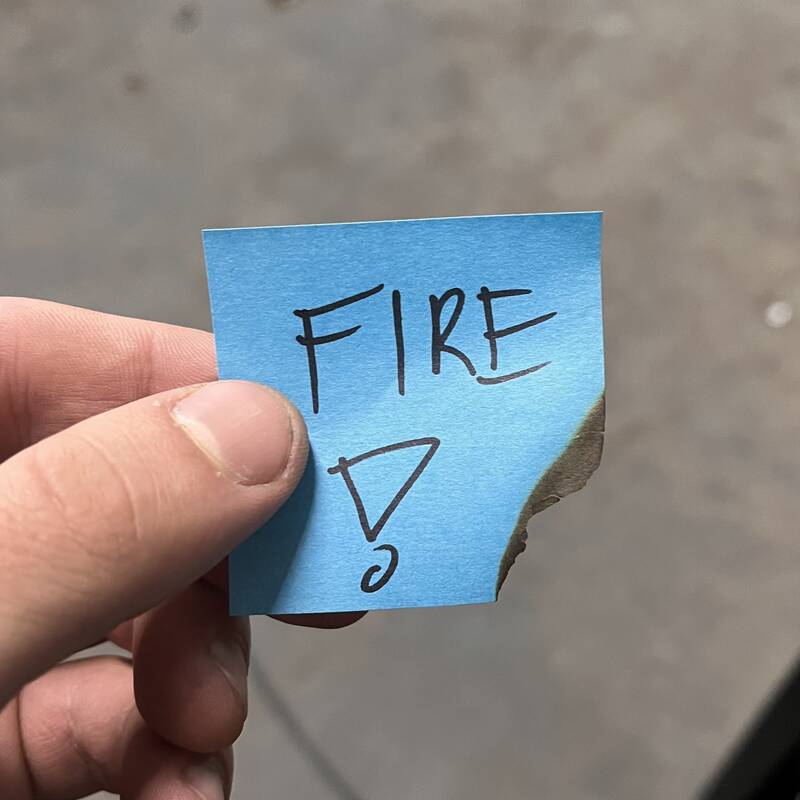 FIRE
!